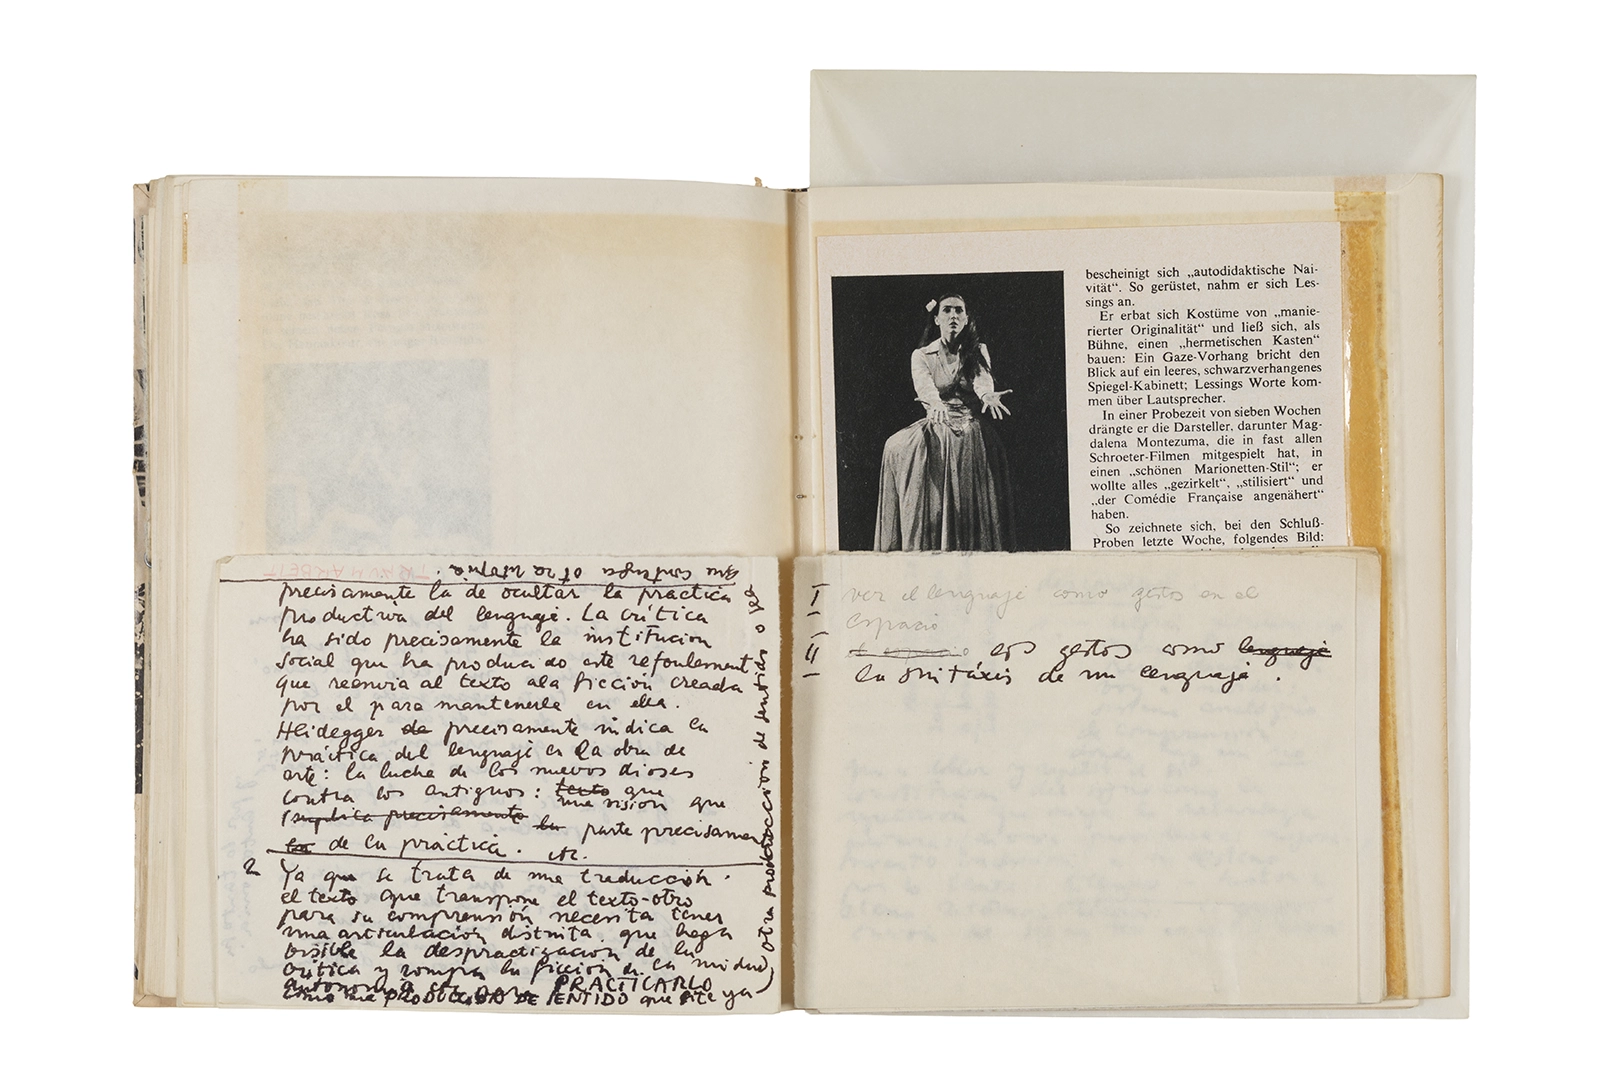 precisamente la de ocultar la practica
productiva del lenguaje. La crítica
ha sido precisamente la institucion
social que ha producido este refoulement
que reenvia al texto a la ficción creada
por el para mantenerla en ella.
Heidegger precisamente indica la
práctica del lenguaje en la obra de
arte: la lucha de los nuevos dioses
contra los antiguos: texto que
una vision que
implica precisamente la parte precisamen
de la práctica. etc.
2 Ya que se trata de una traducción.
el texto que transpone el texto-otro
para su comprensión necesita tener
una articulación distinta. que haga
visible la despractización de la
critica y rompa la ficción de la
autonomia PRACTICARLO
como PRODUCCION DE SENTIDO que este ya
otra producción de sentido o sea
que contenga otra utopia.
TRAUMARBEIT
bescheinigt sich „autodidaktische Nai-
vität“. So gerüstet, nahm er sich Les-
sings an.
Er erbat sich Kostüme von „manie-
rierter Originalität“ und ließ sich, als
Bühne, einen „hermetischen Kasten“
bauen: Ein Gaze-Vorhang bricht den
Blick auf ein leeres, schwarzverhangenes
Spiegel-Kabinett; Lessings Worte kom-
men über Lautsprecher.
In einer Probezeit von sieben Wochen
drängte er die Darsteller, darunter Mag-
dalena Montezuma, die in fast allen
Schroeter-Filmen mitgespielt hat, in
einen „schönen Marionetten-Stil“; er
wollte alles „gezirkelt“, „stilisiert“ und
„der Comédie Française angenähert“
haben.
So zeichnete sich, bei den Schluß-
Proben letzte Woche, folgendes Bild:
I ver el lenguaje como gestos en el
espacio
II el espacio los gestos como lenguaje
la sintáxis de un lenguaje.